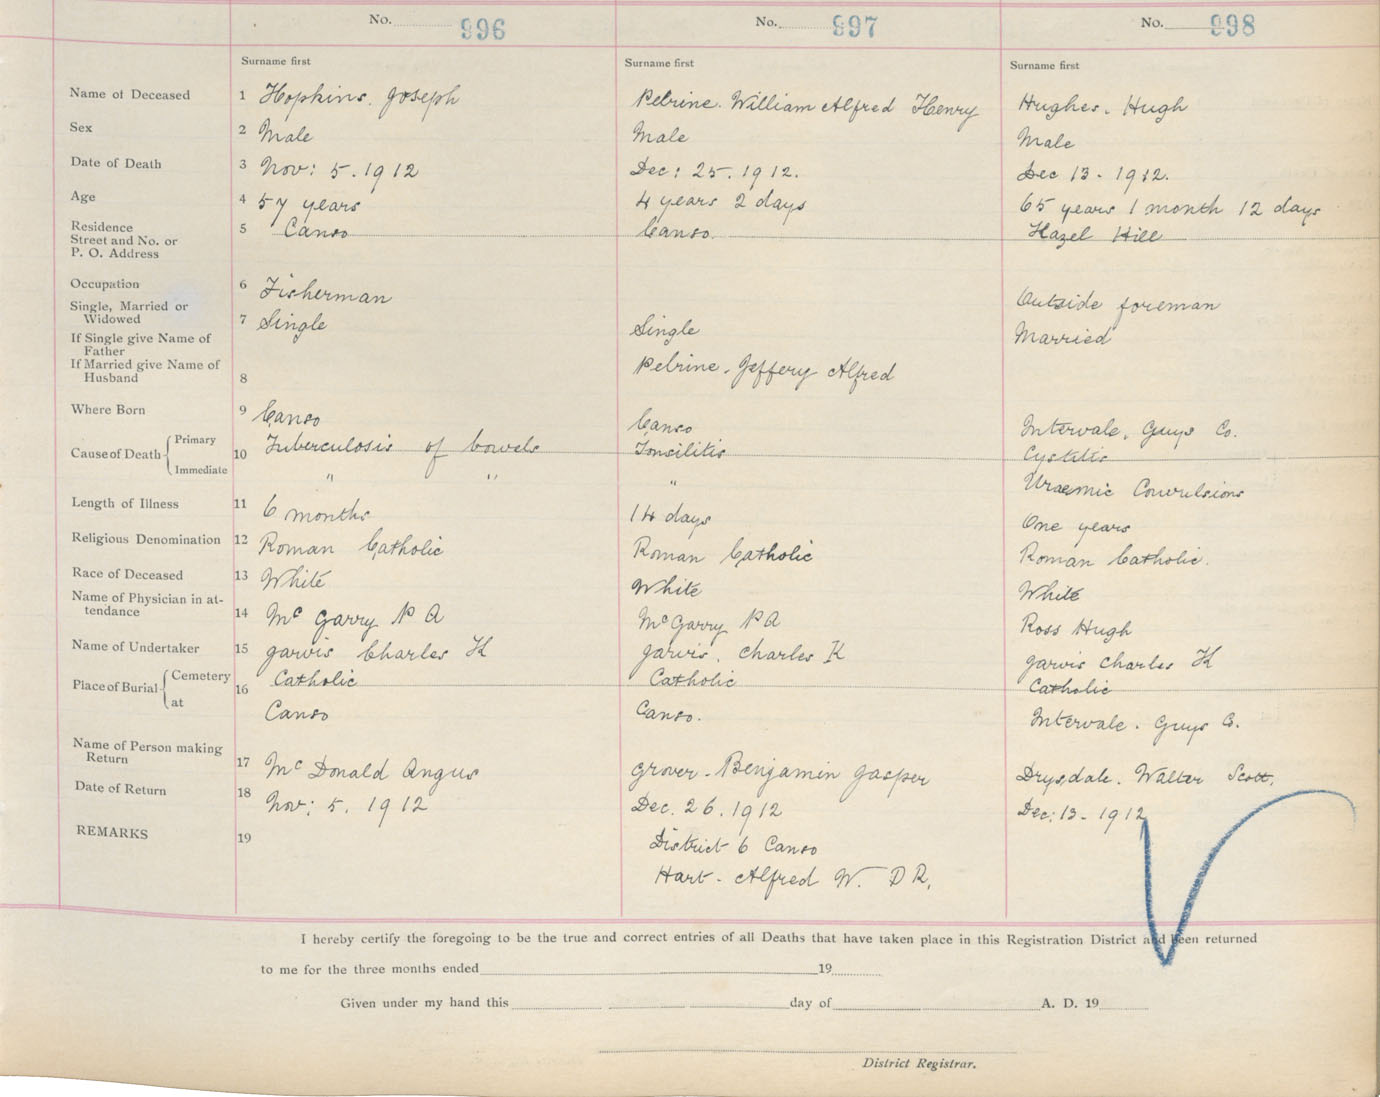 No. 996 No. 997 No. 998
Surname first Surname first Surname first
Name of Deceased 1 Hopkins. Joseph Pelrine. William Alfred Henry Hughes. Hugh
Sex 2 Male Male Male
Date of Death 3 Nov: 5. 1912 Dec: 25. 1912. Dec 13 - 1912.
Age 4 57 years 4 years 2 days 65 years 1 month 12 days
Residence
Street and No. or 5 Canso Canso. Hazel Hill
P. O. Address
Occupation 6 Fisherman Outside foreman
Single, Married or
Widowed 7 Single Single Married
If Single give Name of
Father
If Married give Name of
Husband 8 Pelrine. Jeffery Alfred
Where Born 9 Canso Canso Intervale. Guys Co.
Cause of Death Primary 10 Tuberculosis of bowels Tonsilitis Cystitis
Immediate " " " Uraemic Convulsions
Length of Illness 11 6 months 14 days One years
Religious Denomination 12 Roman Catholic Roman Catholic Roman Catholic.
Race of Deceased 13 White White White
Name of Physician in at-
tendance 14 Mc Garry P A Mc Garry P A Ross Hugh
Name of Undertaker 15 Jarvis Charles K Jarvis. Charles K Jarvis Charles K
Place of Burial Cemetery 16 Catholic Catholic Catholic
at Canso Canso. Intervale. Guys Co.
Name of Person making
Return 17 Mc Donald Angus Grover. Benjamin Jasper Drysdale. Walter Scott.
Date of Return 18 Nov: 5. 1912 Dec. 26. 1912 Dec: 13 - 1912
REMARKS 19 District 6 Canso
Hart. Alfred W. D R.
I hereby certify the foregoing to be the true and correct entries of all Deaths that have taken place in this Registration District and been returned
to me for the three months ended 19
Given under my hand this day of A. D. 19
District Registrar.